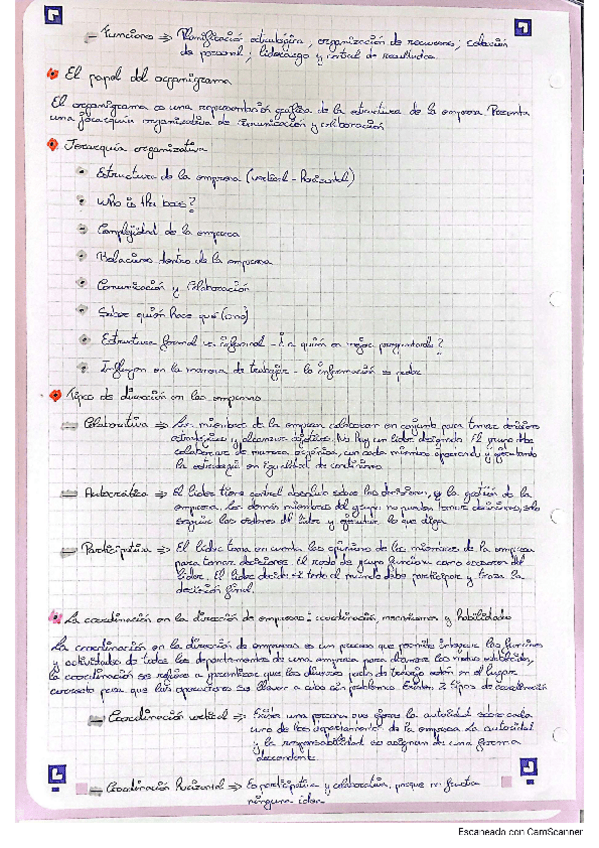 Funciones => Planificación estratégica, organización de recursos, selección
de personal, liderazgo y control de resultados
El papel del organigrama
El organigrama es una representación gráfica de la estructura de la empresa. Presenta
una jerarquía organizativa de comunicación y colaboración
Jerarquía organizativa
Estructura de la empresa (vertical - horizontal)
Who is the boss?
Complejidad de la empresa
Relaciones dentro de la empresa
Comunicación y Colaboración
Saber quién hace qué
Estructura formal vs. informal - ¿A quién es mejor preguntarle?
Influyen en la manera de trabajar - la información = poder
Tipos de dirección en las empresas
Colaborativa => Los miembros de la empresa colaboran en conjunto para tomar decisiones
estratégicas y alcanzar objetivos. No hay un líder designado. El grupo debe
colaborar de manera orgánica, con cada miembro aportando y ejecutando
la estrategia en igualdad de condiciones
Autocrática => El líder tiene control absoluto sobre las decisiones, y la gestión de la
empresa. Los demás miembros del grupo no pueden tomar decisiones, solo
seguir las órdenes del líder y ejecutar lo que diga.
Participativa => El líder toma en cuenta las opiniones de los miembros de la empresa
para tomar decisiones. El resto de grupo funciona como asesores del
líder. El líder decide si todo el mundo debe participar y traza la
decisión final.
La coordinación en la dirección de empresas: coordinación, mecanismos y habilidades
La coordinación en la dirección de empresas es un proceso que permite integrar las funciones
y actividades de todos los departamentos de una empresa para alcanzar las metas establecidas,
la coordinación se refiere a garantizar que los diversos de trabajo estén en el lugar
correcto para que las operaciones se lleven a cabo sin problema. Existen 2 tipos de coordinación
Coordinación vertical => Existe una persona que ejerce la autoridad sobre cada
uno de los departamentos de la empresa. La autoridad
y la responsabilidad se asignan de una forma
descendente.
Coordinación horizontal => Es participativa y colaborativa, porque no
ninguna
Escaneado con CamScanner